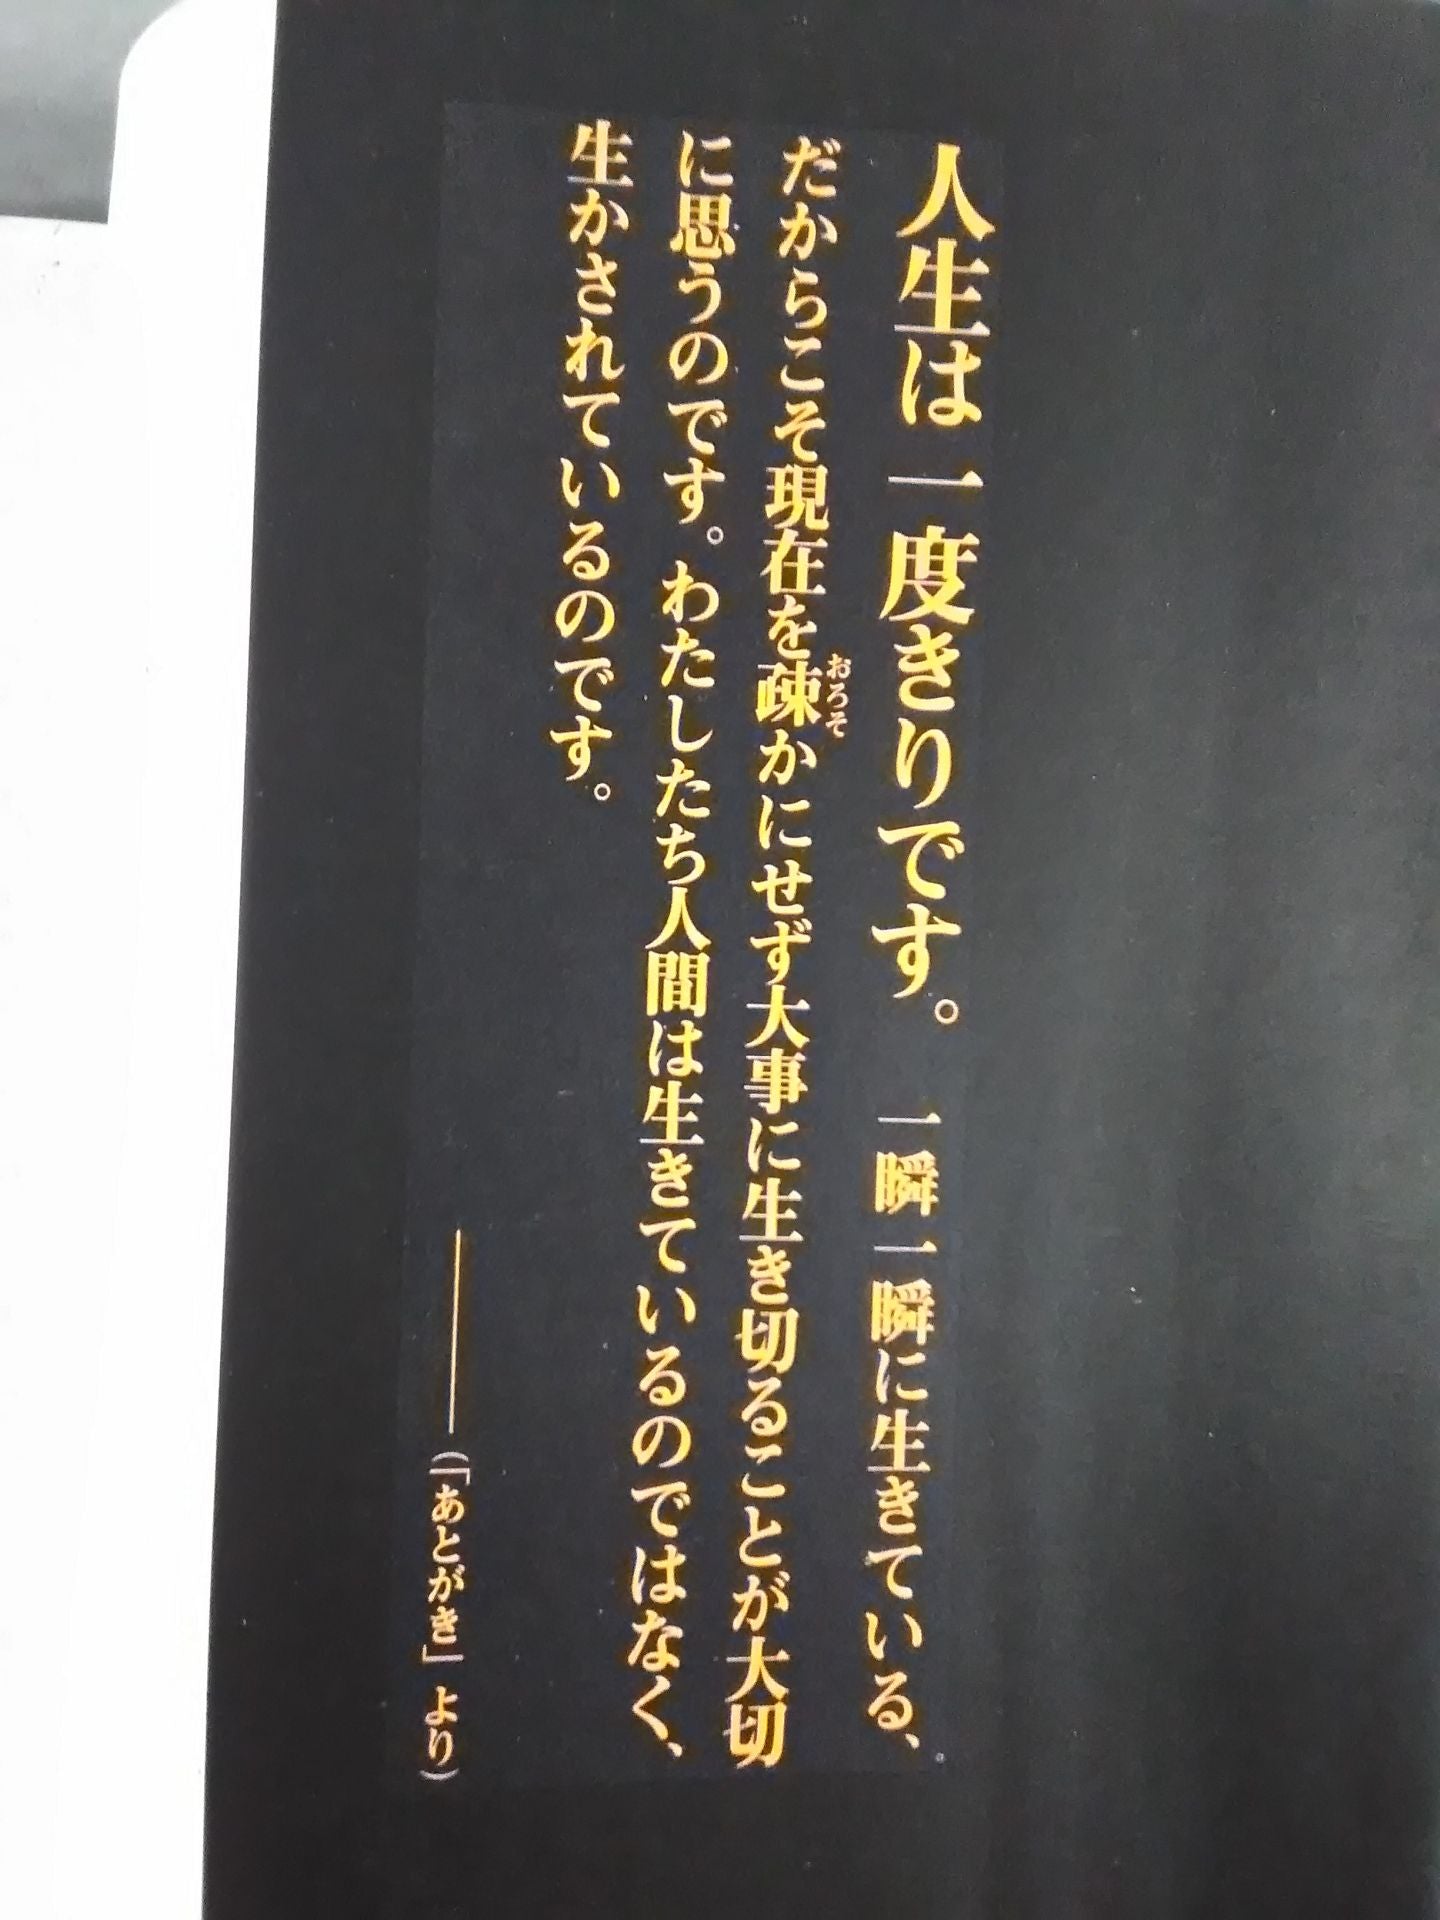 人生は一度きりです。 一瞬一瞬に生きている、
だからこそ現在を疎かにせず大事に生き切ることが大切
おろそ
に思うのです。わたしたち人間は生きているのではなく、
生かされているのです。
――(「あとがき」より)